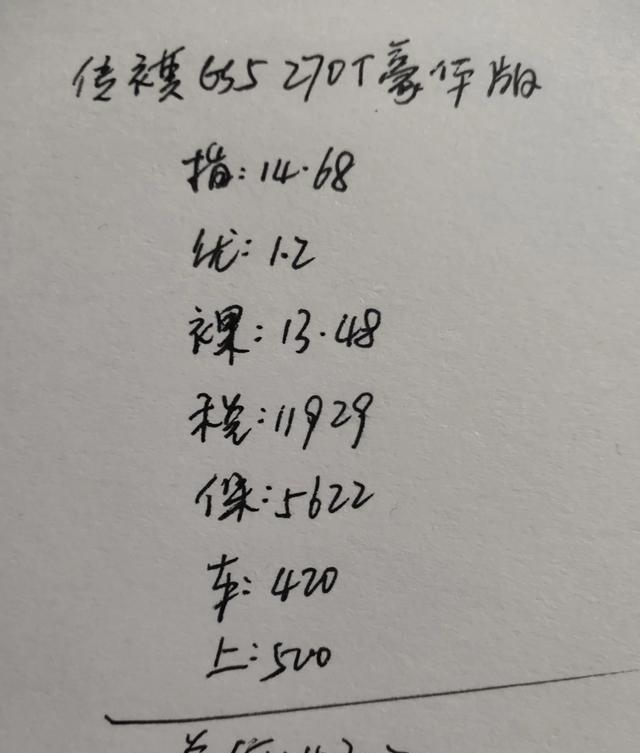 传祺GS5 270T豪华版
指:14.68
优:1.2
裸:13.48
税:11929
保:5622
车:420
上:500